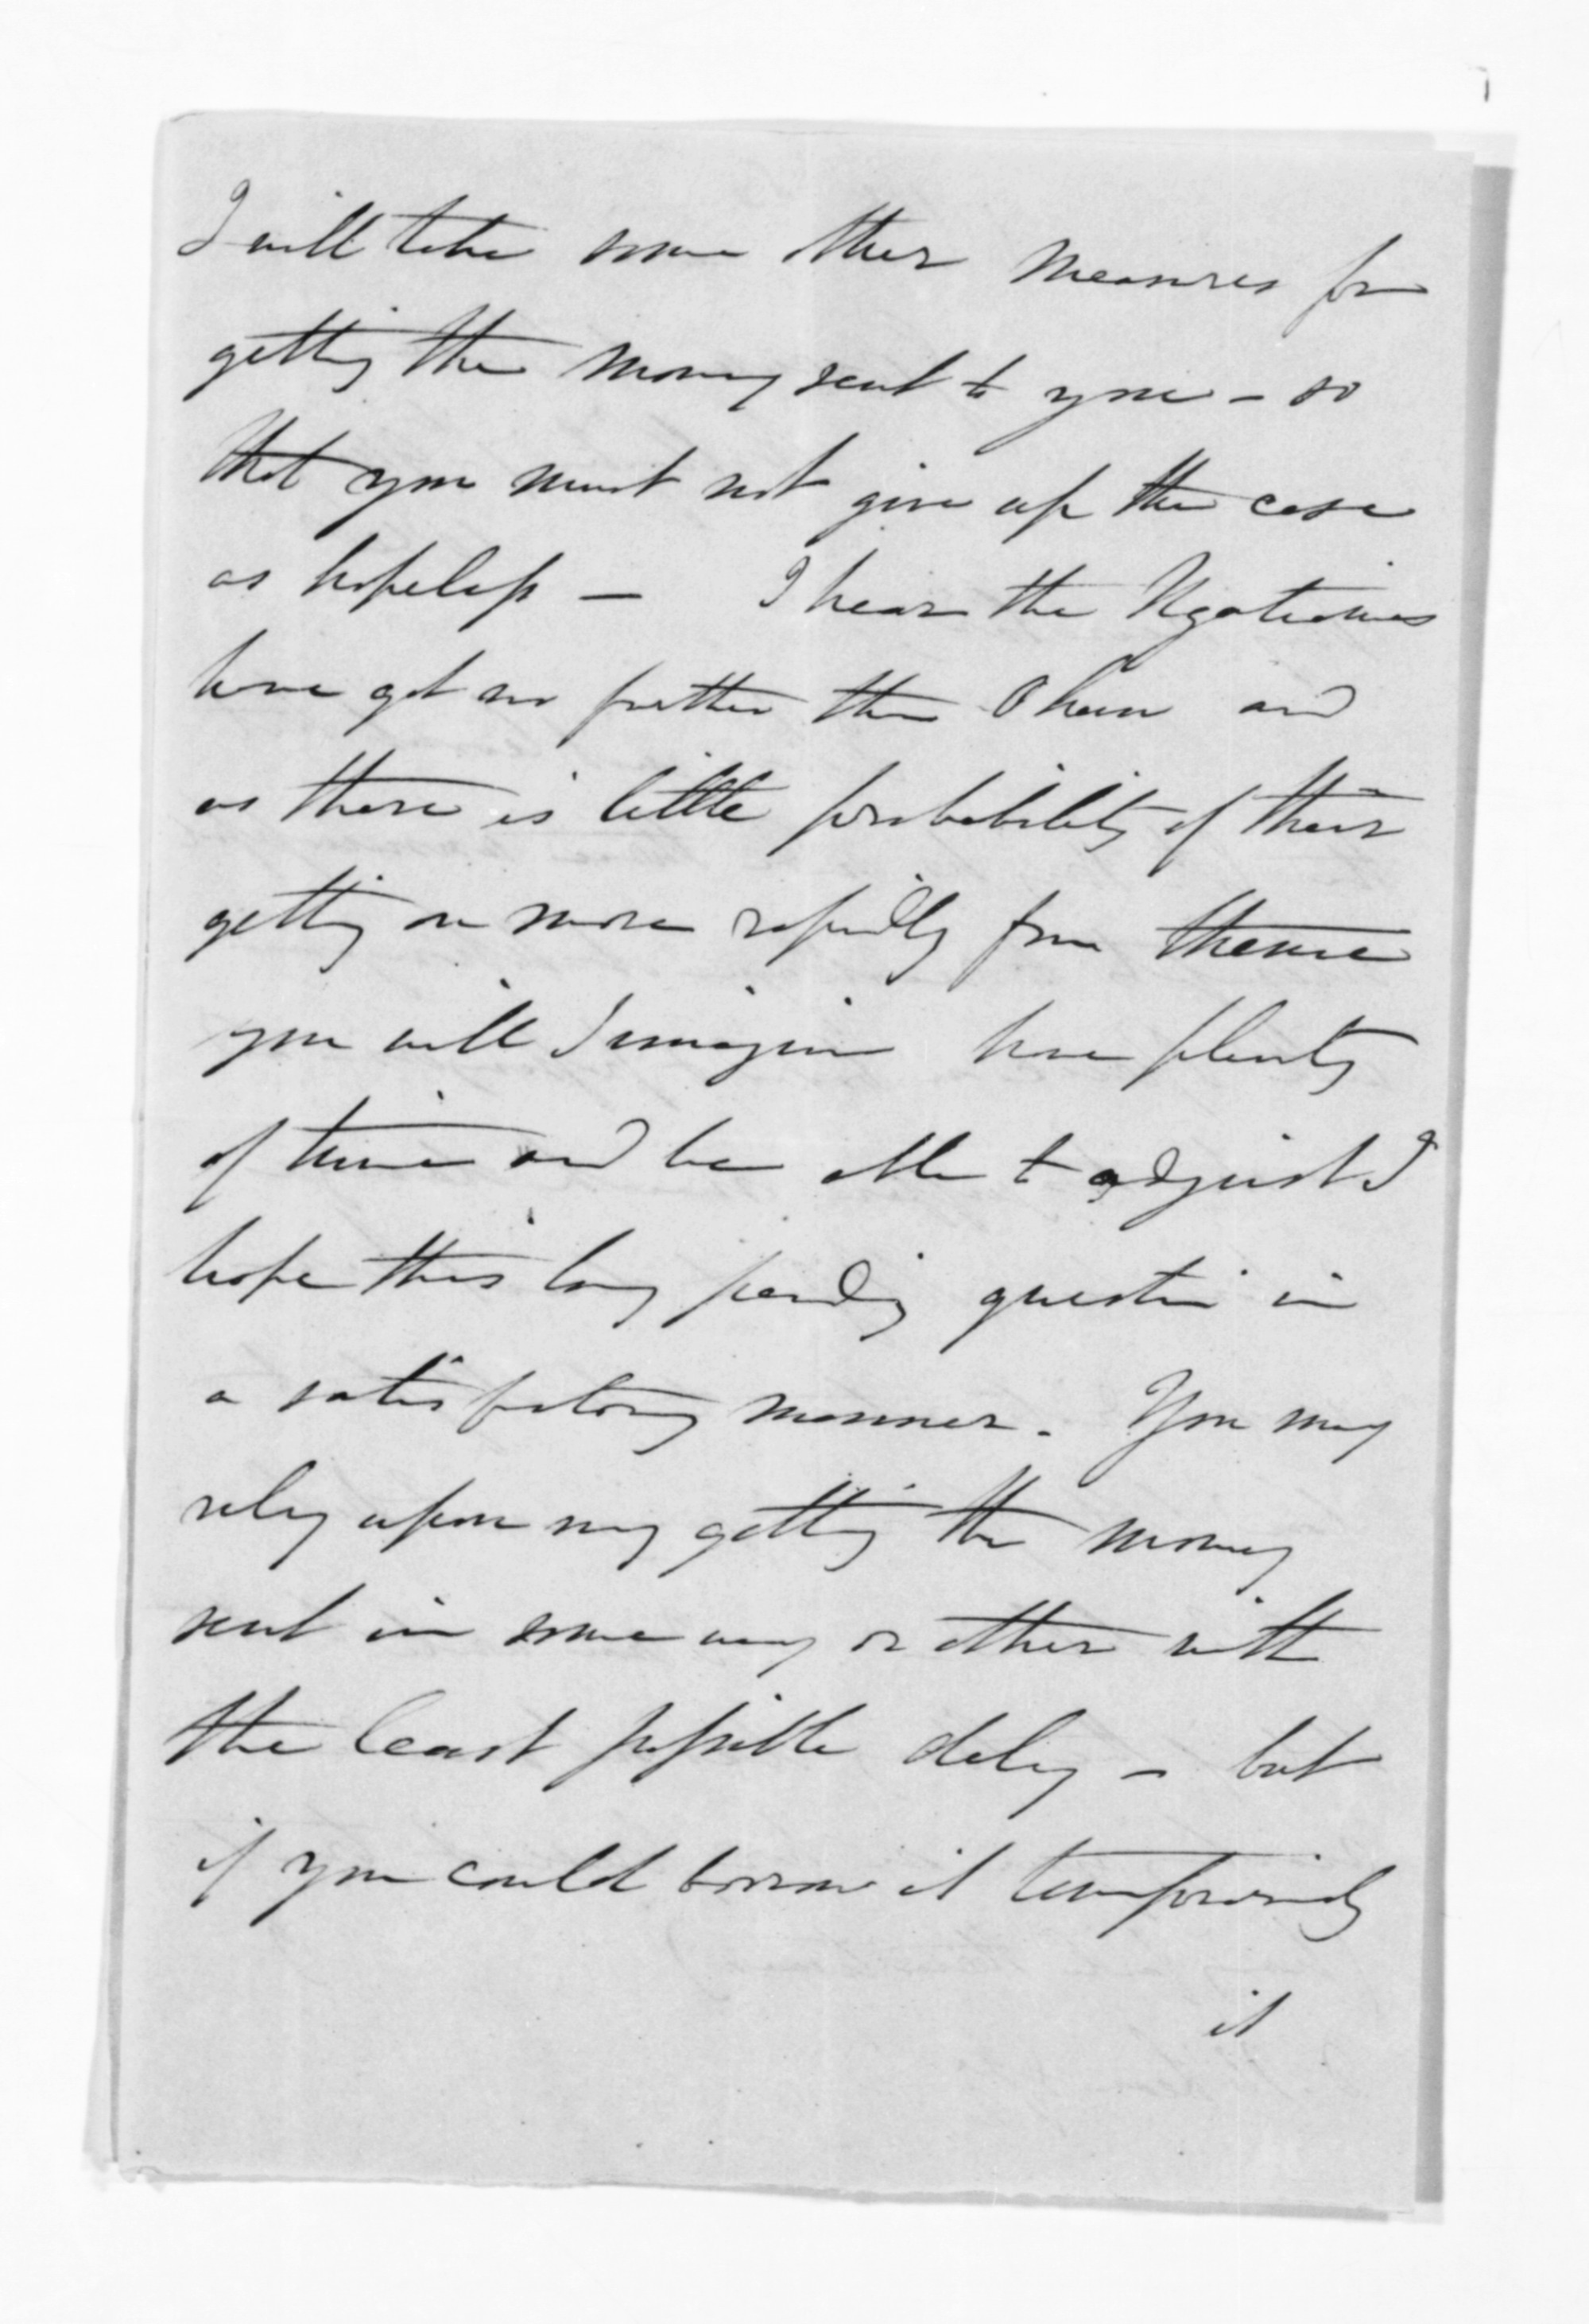 I will take some other measures for
getting the money sent to you – so
that you must not give up the case
as hopeless – I hear the
have got no further than Ohau and
as there is little probability of their
getting on more rapidly from thence
you will I imagine have plenty
of time and be able to adjust I
hope this long pending question in
a satisfactory manner. You may
rely upon my getting the money
sent in some way or other with
the least possible delay – but
if you could borrow it temporarily
it